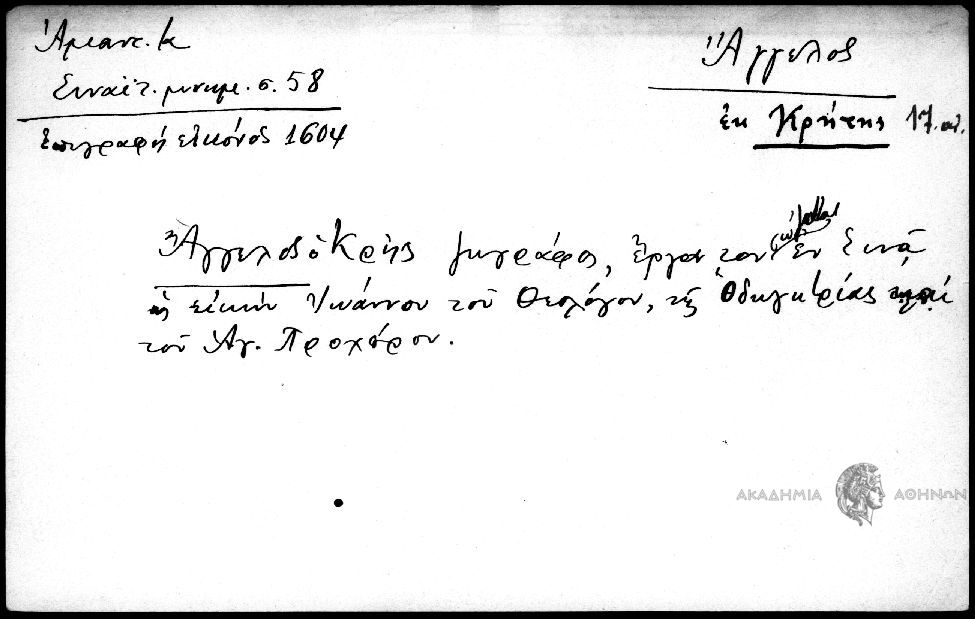 Ἀμαντ. Κ
Σιναϊτ. μνημ. σ. 58
Ἐπιγραφή εἰκόνος 1604
Ἄγγελος
ἐκ Κρήτης 17. αἰ.
Ἄγγελος ὁ Κρής ζωγράφος, ἔργον του ἐν Σινᾷ
ἡ εἰκών Ἰωάννου τοῦ Θεολόγου, τῆς Ὁδηγητρίας
τοῦ Ἁγ. Προχόρου.
ΑΚΑΔΗΜΙΑ ΑΘΗΝΩΝ